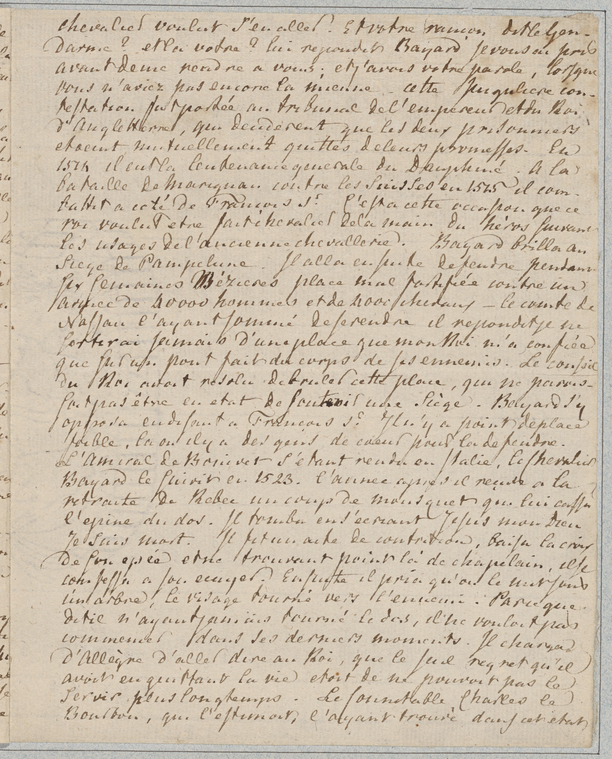 chevalier voulut s'en aller. Et votre rançon dit le Gen-
darme? et la votre? lui repondit Bayard je vous ai pris
avant de me rendre a vous; et j'avois votre parole, lorsque
vous n'aviez pas encore la mienne. cette singuliere con-
testation fut portée au tribunal de l'empereur et du Roi
d'Angleterre, qui deciderent que les deux prisonniers
etoient mutuellement quittes de leurs promesses. En
1514 il eut la lieutenance generale du Dauphiné. A la
bataille de Marignan contre les Suisses en 1515 il com-
battit a coté de François 1r. C'est a cette occasion que ce
roi voulut etre fait chevalier de la main du héros suivant
les usages de l'ancienne chevallerie. Bayard brilla au
Siege de Pampelune. Il alla ensuite defendre pendant
six semaines Mézieres place mal fortifiée contre un
armée de 40000 hommes et de 4000 chevaux - le comte de
Nassau l'ayant sommé de se rendre il repondit je ne
sortirai jamais d'une place que mon Roi m'a confiée
que sur un pont fait du corps de ses ennemis. Le conseil
du Roi avoit resolu de bruler cette place, qui ne parois-
soit pas être en etat de soutenir une Siège. Bayard s'y
opposa en disant a François 1r. Il n'y a point de place
foible, la ou il y a des gens de coeur pour la defendre.
L'Amiral de Bonivet s'etant rendu en Italie, le chevalier
Bayard le suivit en 1523. l'année après il reçut a la
retraite de Rebec un coup de mousquet qui lui cassa
l'epine du dos. Il tomba en s'ecriant Jesus mon Dieu
Je suis mort. Il fit un acte de contrition, baisa la croix
de son epée et ne trouvant point là de chapelain, il se
confessa a son ecuyer. Ensuite il pria qu'on le mit sous
un arbre, le visage tourné vers l'ennemi: Parceque
dit il n'ayant jamais tourné le dos, il ne vouloit pas
commencer dans ses derniers moments. Il chargea
d'Allègre d'aller dire au Roi, que le seul regret qu'il
avoit en quittant la vie etoit de ne pouvoir pas le
servir plus longtemps. Le Connetable Charles de
Bourbon, qui l'estimoit, l'ayant trouvé dans cet état